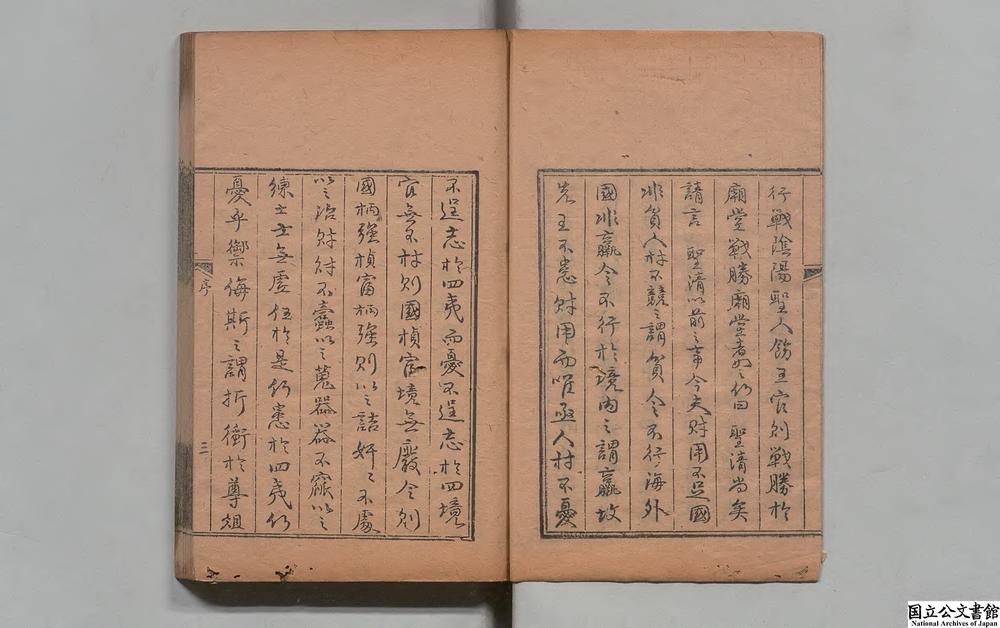 行戰陰陽聖人飭五官則戰勝於
廟堂戰勝廟堂者如之何曰聖清尚矣
請言 聖清以前之事今夫財用不足國
非貧人材不競之謂貧令不行海外
國非羸令不行於境內之謂羸故
先王不患財用而唯亟人材不憂
不逞志於四夷而憂不逞志於四境
官無不材則國楨富境無廢令則
國柄強楨富柄強則以之詰奸々不處
以之治財財不蠹以之蒐器器不窳以之
練士士無虛伍於是何患於四夷何
憂乎禦侮斯之謂折衝於尊俎
序
三
国立公文書館
National Archives of Japan